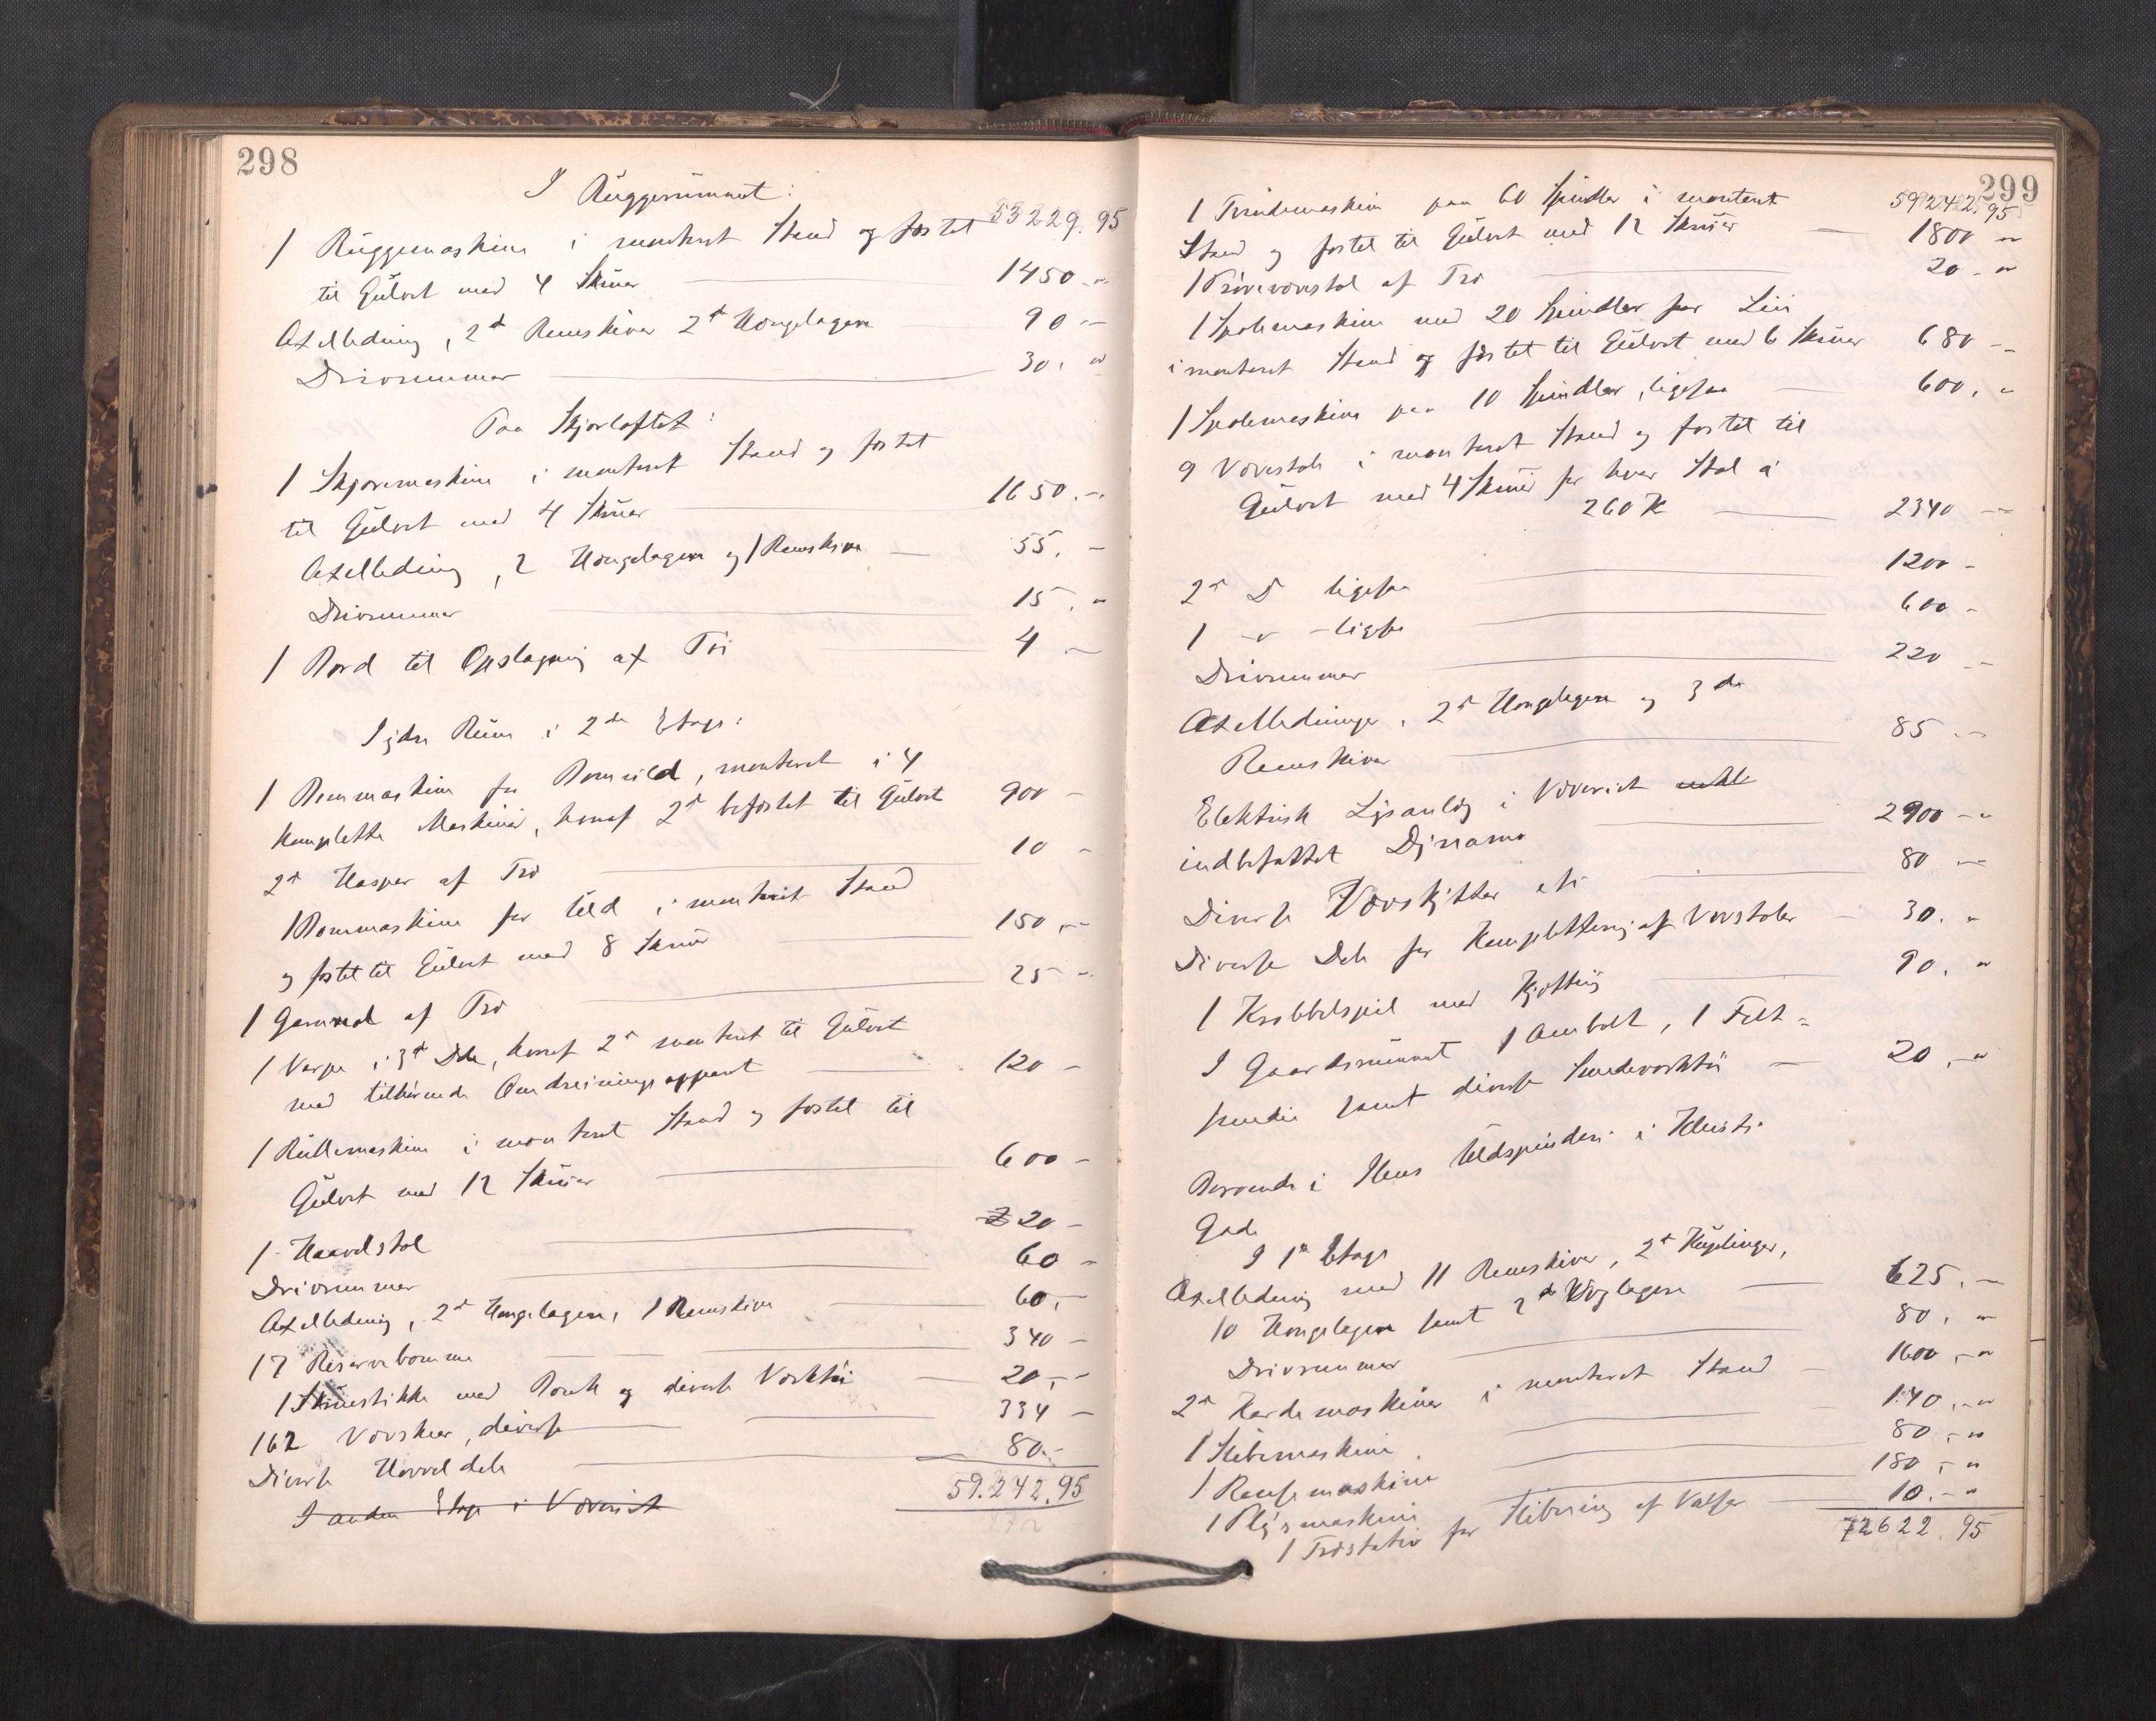 298
I Ruggerummet:
53229.95
1 Ruggemaskine i monteret Stand og fæstet
til Gulvet med 4 Skruer 1450 -
Axelledning, 2 Remskiver 2 Hængelagere 90 -
Drivremmer 30. -
Paa Skjærloftet:
1 Skjæremaskine i monteret Stand og fæstet
til Gulvet med 4 Skruer 1650. -
Axelledning, 2 Hængelagere og 1 Remskive 55. -
Drivremmer 15. -
1 Bord til Opslagning af Tøi 4 -
I ydre Rum i 2den Etage:
1 Bommaskine for Bomuld, monteret i 4
komplette Maskiner, hvoraf 2 befæstet til Gulvet 900 -
2 Hasper af Træ 10 -
1 Bommaskine for Uld i monteret Stand
og fæstet til Gulvet med 8 Skruer 150. -
1 af Træ 25 -
1 Varpe i 3 Dele, hvoraf 2 monteret til Gulvet
med tilhørende Omdreiningsapparat 120 -
1 Rullemaskine i monteret Stand og fæstet til
Gulvet med 12 Skruer 600 -
1 Haandstol 20 -
Drivremmer 60 -
Axelledning, 2 Hængelagere, 1 Remskive 60. -
17 Reservebomme 340 -
1 Skruestikke med Bænk og diverse Værktøi 20. -
162 Vævskeer, diverse 334 -
Diverse dele 80. -
59.242.95
I anden Etage i Væveriet
299
59242.95
1 Tvindemaskine paa 60 Spindler i monteret
Stand og fæstet til Gulvet med 12 Skruer 1800 -
1 Prøvevævstol af Træ 20 -
1 Spolemaskine med 20 Spindler for Lin
i monteret Stand og fæstet til Gulvet med 6 Skruer 680 -
1 Spolemaskine paa 10 Spindler, ligesaa 600. -
9 Vævstole i monteret Stand og fæstet til
Gulvet med 4 Skruer for hver Stol á
260 K 2340 -
2 D ligesaa 1200 -
1 - " - ligesaa 600 -
Drivremmer 220 -
Axelledninger, 2 Hængelagere og 3de
Remskiver 85 -
Elektrisk Lysanlæg i Væveriet
indbefattet Dynamo 2900 -
Diverse Vævskytter etc 80 -
Diverse Dele for Komplettering af Vævstoler 30. -
1 Krabbelspil med Kjetting 90. -
I Gaardsrummet 1 Ambolt, 1 Felt-
smedie samt diverse Smedeværktøi 20. -
Beroende i Uldspinderi i
Gade
I 1ste Etage
Axelledning med 11 Remskiver, 2 Koplinger,
10 Hængelagere samt 2 Væglagere 625. -
Drivremmer 80. -
2 Kardemaskiner i monteret Stand 1600. -
1 Slibemaskine 140. -
1 Rensemaskine 80. -
1 Plysmaskine 180. -
1 Træstativ for Slibning af Valser 10. -
72622.95